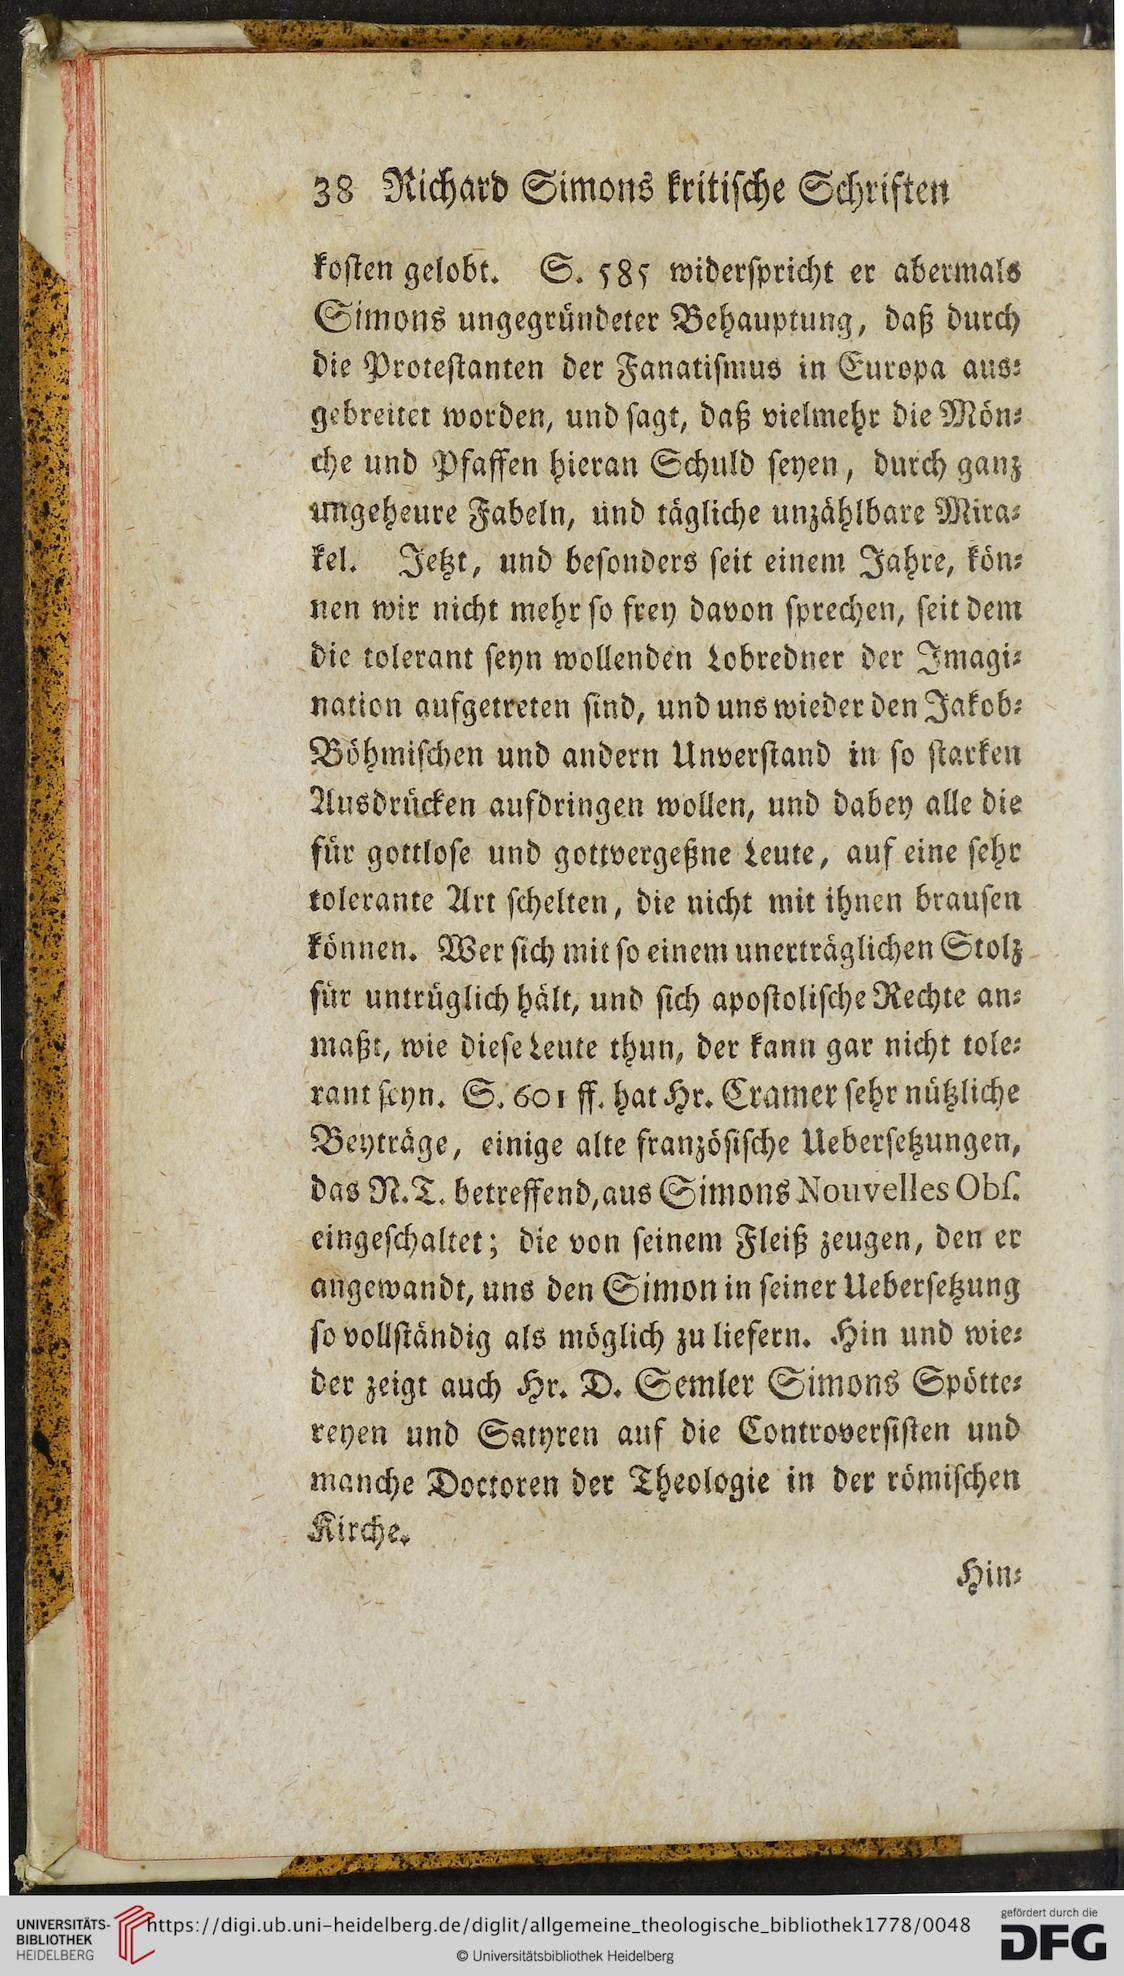 38 Richard Simons kritiſche Schriften
koſten gelobt. S. 585 widerſpricht er abermals
Simons ungegründeter Behauptung, daß durch
die Proteſtanten der Fanatiſmus in Europa aus⸗
gebreitet worden, und ſagt, daß vielmehr die Mön⸗
che und Pfaffen hieran Schuld ſeyen, durch ganz
ungeheure Fabeln, und tägliche unzählbare Mira⸗
kel. Jetzt, und beſonders ſeit einem Jahre, kön⸗
nen wir nicht mehr ſo frey davon ſprechen, ſeit dem
die tolerant ſeyn wollenden Lobredner der Imagi⸗
nation aufgetreten ſind, und uns wieder den Jakob⸗
Böhmiſchen und andern Unverſtand in ſo ſtarken
Ausdrücken aufdringen wollen, und dabey alle die
für gottloſe und gottvergeßne Leute, auf eine ſehr
tolerante Art ſchelten, die nicht mit ihnen brauſen
können. Wer ſich mit ſo einem unerträglichen Stolz
für untrüglich hält, und ſich apoſtoliſche Rechte an⸗
maßt, wie dieſe Leute thun, der kann gar nicht tole⸗
rant ſeyn. S. 601 ff. hat Hr. Cramer ſehr nützliche
Beyträge, einige alte franzöſiſche Ueberſetzungen,
das N. T. betreffend, aus Simons Nouvelles Obſ.
eingeſchaltet; die von ſeinem Fleiß zeugen, den er
angewandt, uns den Simon in ſeiner Ueberſetzung
ſo vollſtändig als möglich zu liefern. Hin und wie⸗
der zeigt auch Hr. D. Semler Simons Spötte⸗
reyen und Satyren auf die Controverſiſten und
manche Doctoren der Theologie in der römiſchen
Kirche.
Hin⸗
UNIVERSITÄTS-
BIBLIOTHEK
HEIDELBERG
https://digi.ub.uni-heidelberg.de/diglit/allgemeine_theologische_bibliothek1778/0048
© Universitätsbibliothek Heidelberg
gefördert durch die
DFG